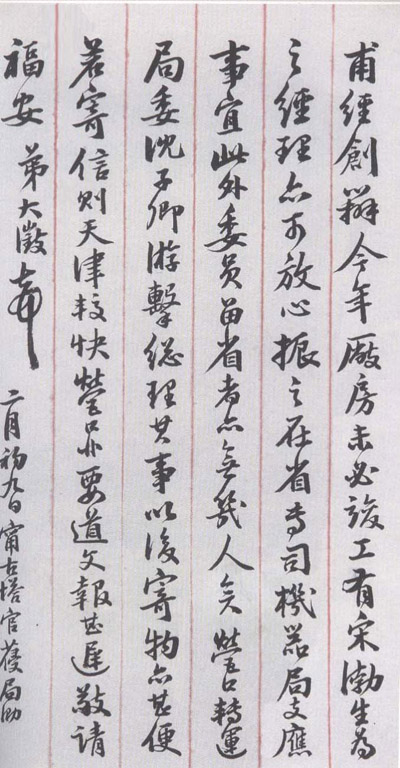 甫經創辦今年廠房未必竣工有宋渤生為
之經理亦可放心振之在省專司機器局支應
事宜此外委員留省者亦無幾人矣營口轉運
局委沈子卿游擊總理其事以後寄物亦甚便
若寄信則天津較快營口非要道文報甚遲敬請
福安 弟大澂
二月初九日甯古塔官